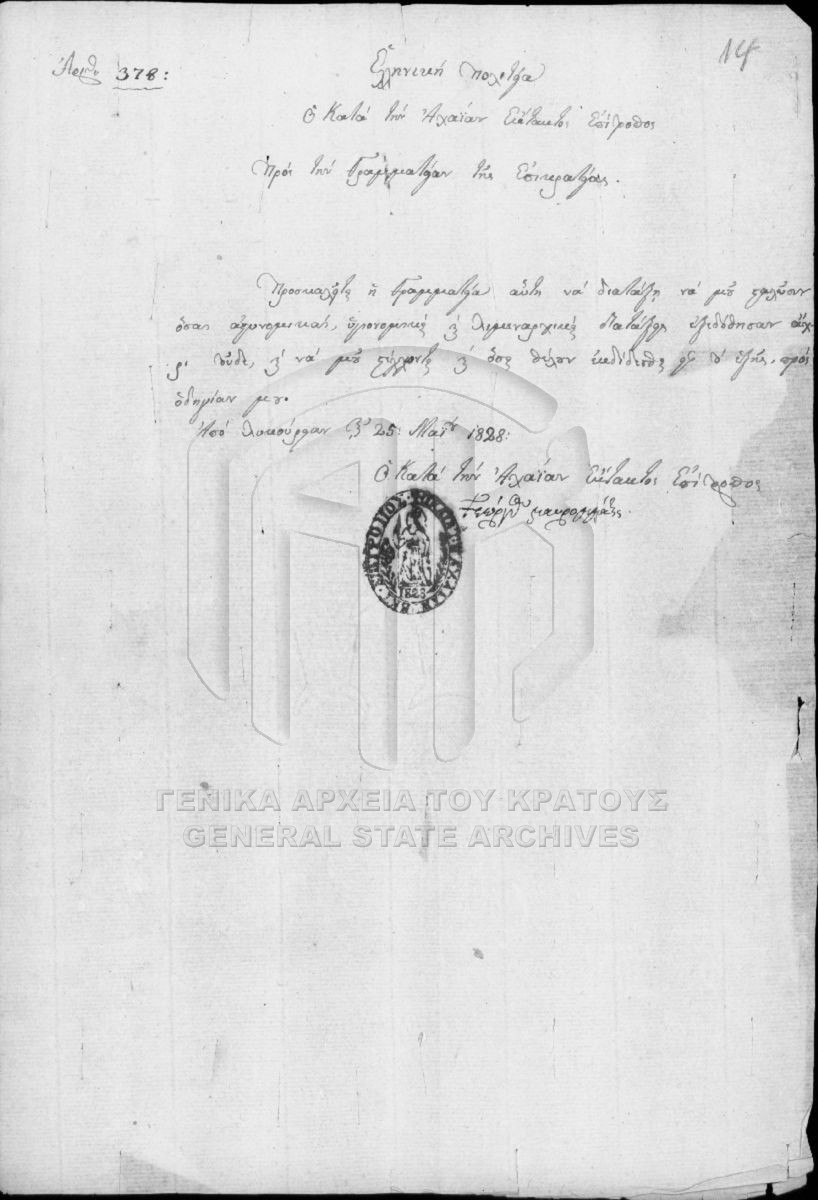 14
Ἀριθ. 378:
Ἑλληνικὴ Πολιτεία
Ὁ Κατὰ τὴν Ἀχαΐαν Ἔκτακτος Ἐπίτροπος
Πρὸς τὴν Γραμματείαν τῆς Ἐπικρατείας.
Προσκαλεῖται ἡ Γραμματεία αὕτη νὰ διατάξῃ νὰ μοῦ σταλῶσιν
ὅσαι ἀστυνομικαὶ, ὑγιονομικαὶ καὶ λιμεναρχικαὶ διατάξεις ἐξεδόθησαν ἄχ-
ρι τοῦδε, καὶ νὰ μοῦ στέλλωνται καὶ ὅσαι θέλουν ἐκδίδεσθαι εἰς τὸ ἑξῆς, πρὸς
ὁδηγίαν μου.
Ἀπὸ 25: Μαΐου 1828:
Ὁ Κατὰ τὴν Ἀχαΐαν Ἔκτακτος Ἐπίτροπος
Γεώργιος
1828
ΓΕΝΙΚΑ ΑΡΧΕΙΑ ΤΟΥ ΚΡΑΤΟΥΣ
GENERAL STATE ARCHIVES